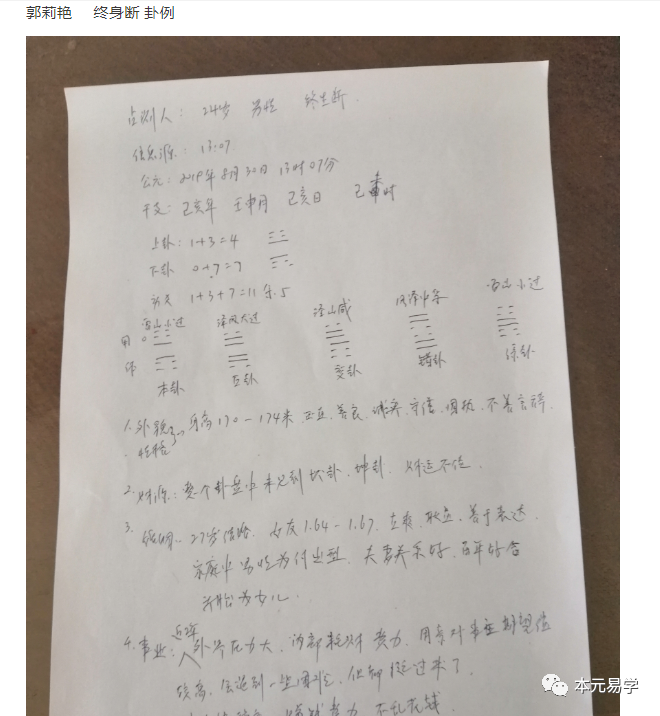 郭莉艳 终身断 卦例
占测人: 24岁 男性 终生断.
信息源: 13:07.
公元: 2019年8月30日 13时07分
干支: 己亥年 壬申月 己亥日 己未时
上卦: 1+3=4
下卦 0+7=7
动爻 1+3+7=11 余.5
雷山小过 泽风大过 泽山咸 风泽中孚 雷山小过
用
体
本卦 互卦 变卦 错卦 综卦
1. 外貌 性格 身高170-174米. 正直, 善良, 谦卑, 守信, 固执, 不善言辞.
2. 财源: 整个卦盘中未见到坎卦, 坤卦. 财运不佳.
3. 婚姻: 27岁结婚. 女友1.64-1.67. 直爽, 耿直, 善于表达.
家庭中男性为付出型. 夫妻关系好, 百年好合
头胎为女儿.
4. 事业: 近年外界压力大, 内部耗财费力, 用卦对事主期望值
较高, 会遇到一些困难, 但却挺过来了.
不乱花钱
本元易学